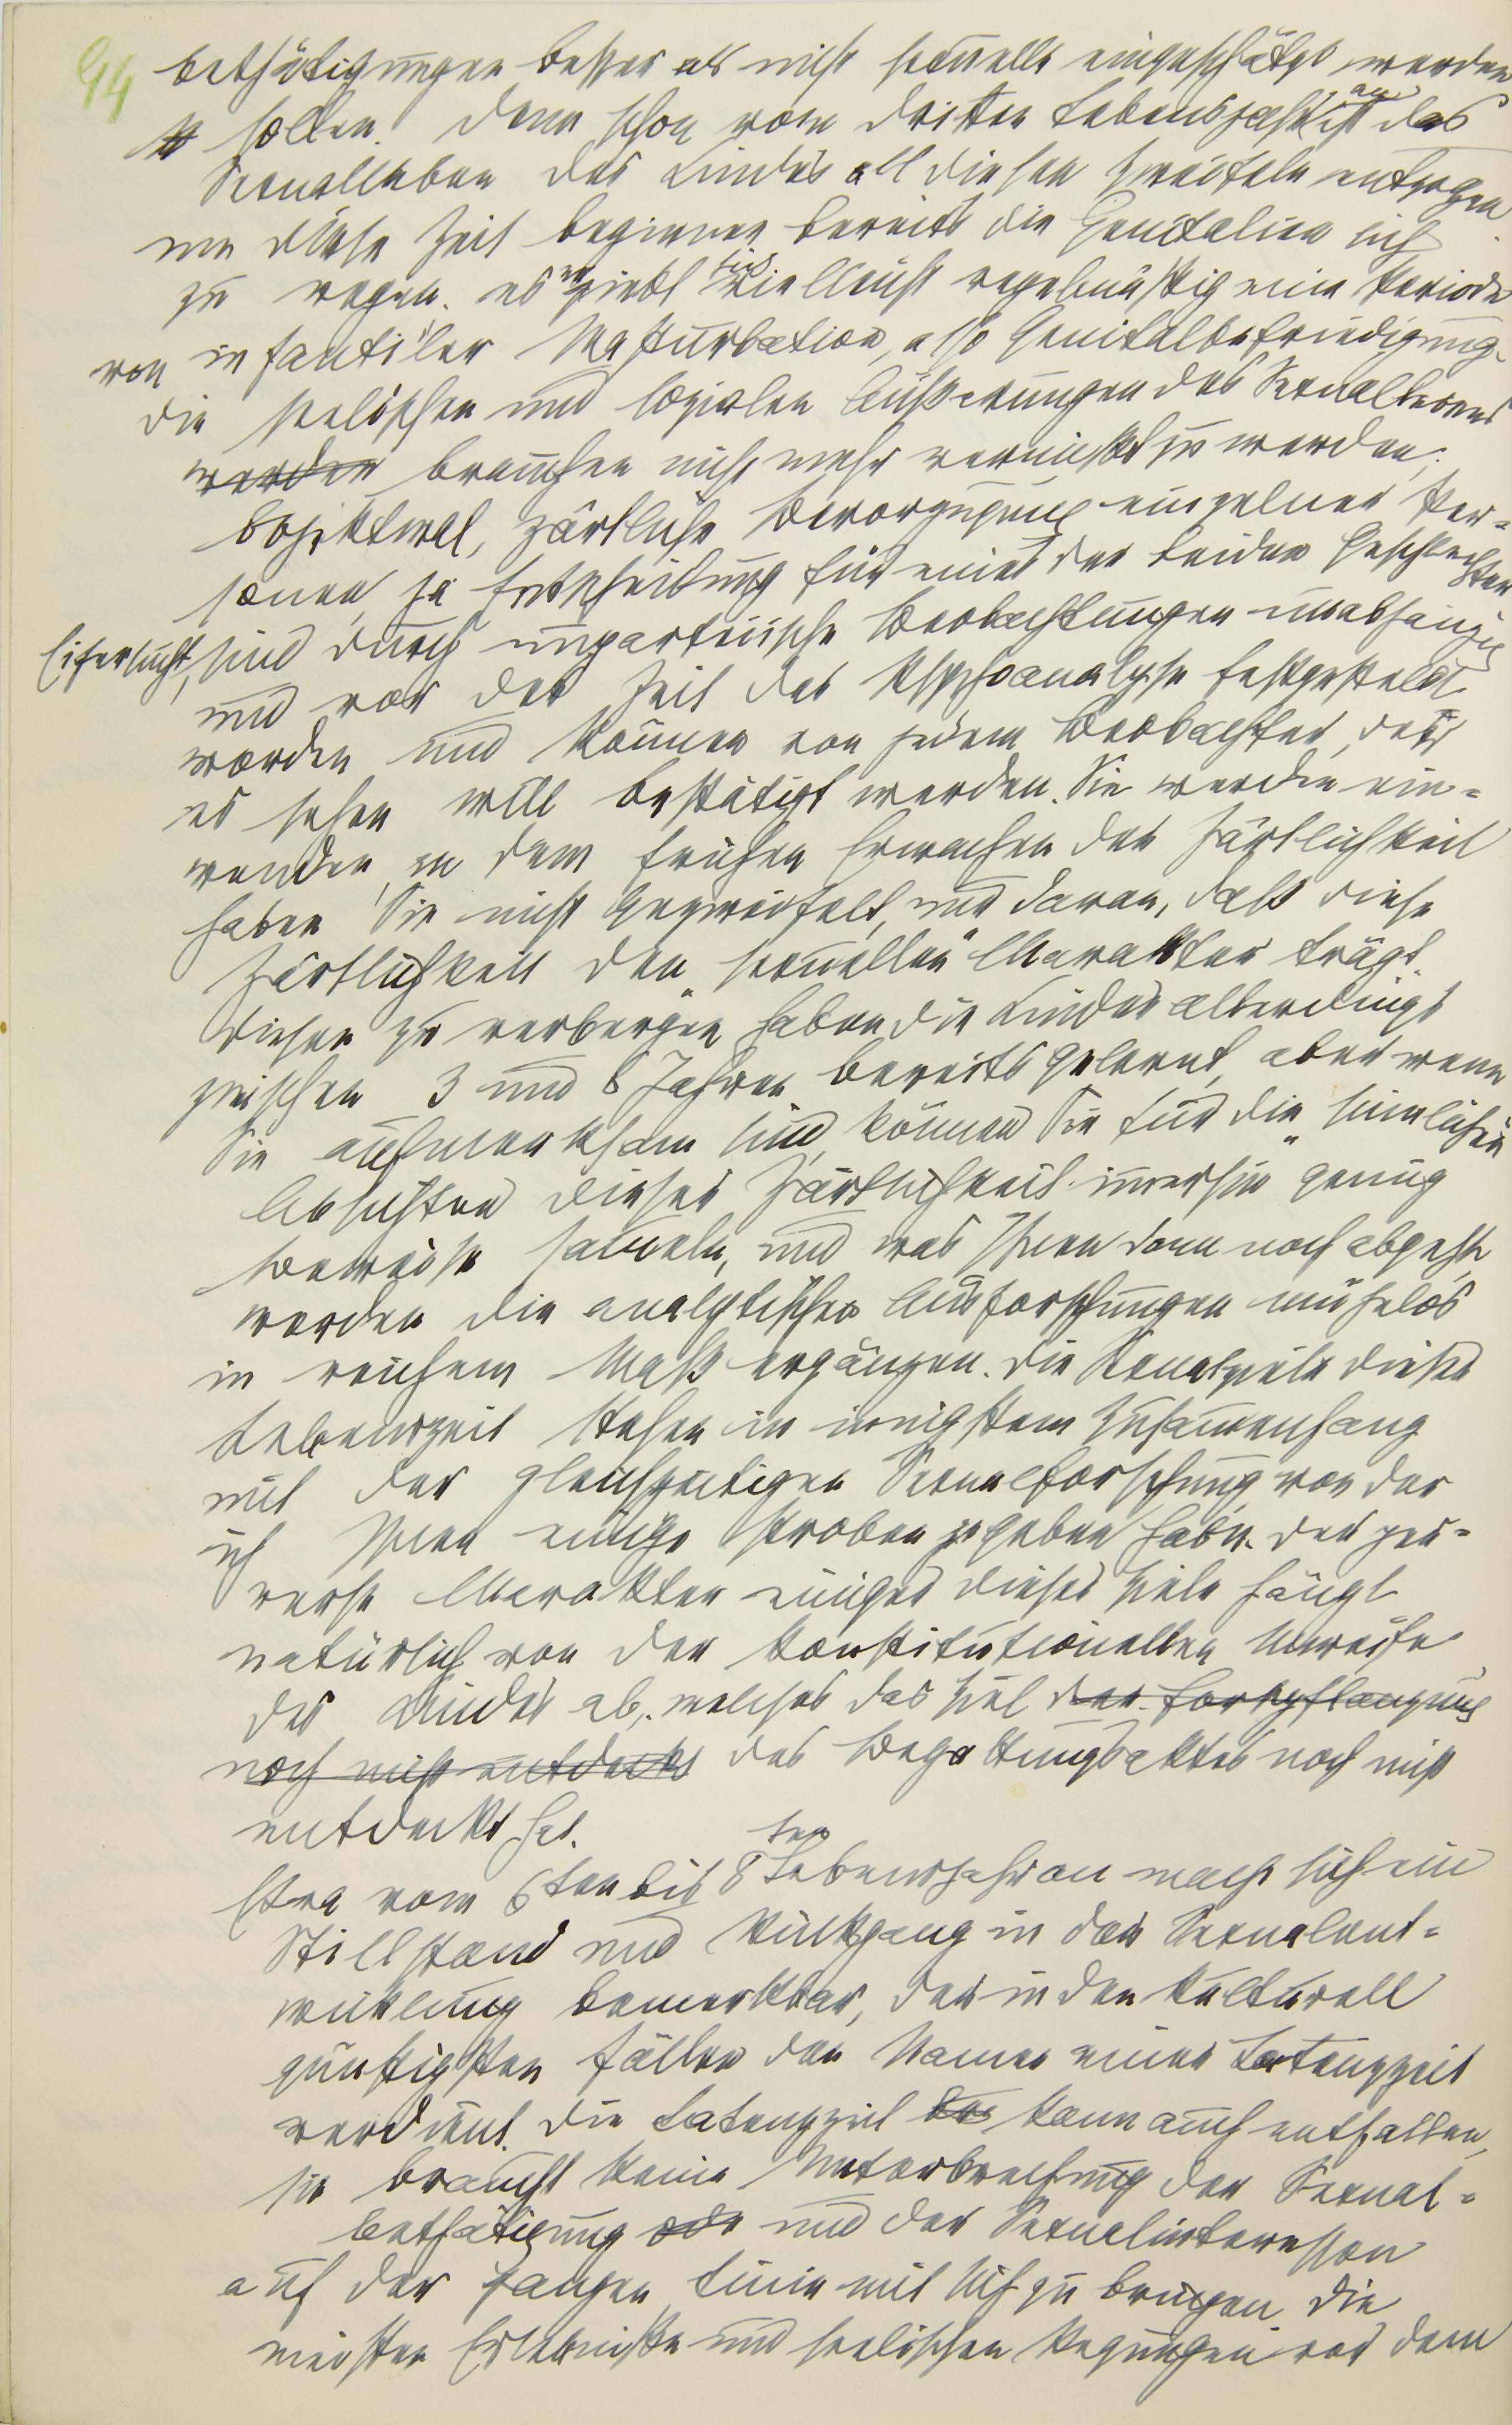 94
bethätigungen besser als nicht sexuelle eingeschätzt werden
sollen. Denn schon vom dritten Lebensjahr an ist das
Sexualleben des Kindes all diesen Zweifeln entzogen
um diese Zeit beginnen bereits die Genitalien sich
zu regen. es ergiebt sich vielleicht regelmäßig eine Periode
von infantiler Masturbation, also Genitalbefriedigung.
Die seelischen und sozialen Äußerungen des Sexuallebens
werden brauchen nicht mehr vermißt zu werden;
Objektwal, zärtliche Bevorzugung einzelner Per-
sonen, ja Entscheidung für eines der beiden Geschlechter
Eifersucht, sind durch unparteiische Beobachtungen unabhängig
und vor der Zeit der Psychoanalyse festgestellt
worden und können von jedem Beobachter, der
es sehen will bestätigt werden. Sie werden ein-
wenden, an dem frühen Erwachen der Zärtlichkeit
haben Sie nicht gezweifelt, nur daran, daß diese
Zärtlichkeit den „sexuellen“ Charakter trägt.
Diesen zu verbergen haben die Kinder allerdings
zwischen 3 und 8 Jahren bereits gelernt, aber wenn
Sie aufmerksam sind, können Sie für die „sinnlichen“
Absichten dieser Zärtlichkeit immerhin genug
Beweise sammeln, und was Ihnen dann noch abgeht,
werden die analytischen Ausforschungen mühelos
in reichem Maß ergänzen. Die Sexualziele dieser
Lebenszeit stehen in innigstem Zusammenhang
mit der gleichzeitigen Sexualforschung, von der
ich Ihnen einige Proben gegeben habe. Der per-
verse Charakter einiger dieser Ziele hängt
natürlich von der konstitutionellen Unreife
des Kindes ab, welches das Ziel der Fortpflanzung
noch nicht entdeckt des Begattungsaktes noch nicht
entdeckt hat.
Etwa vom 6ten bis 8ten Lebensjahr an macht sich ein
Stillstand und Rückgang in der Sexualent-
wicklung bemerkbar, der in den kulturell
günstigsten Fällen den Namen einer Latenzzeit
verdient. Die Latenzzeit kann auch entfallen,
sie braucht keine Unterbrechung der Sexual-
bethätigung oder und der Sexualinteressen
auf der ganzen Linie mit sich zu bringen. Die
meisten Erlebniße und seelischen Regungen vor dem